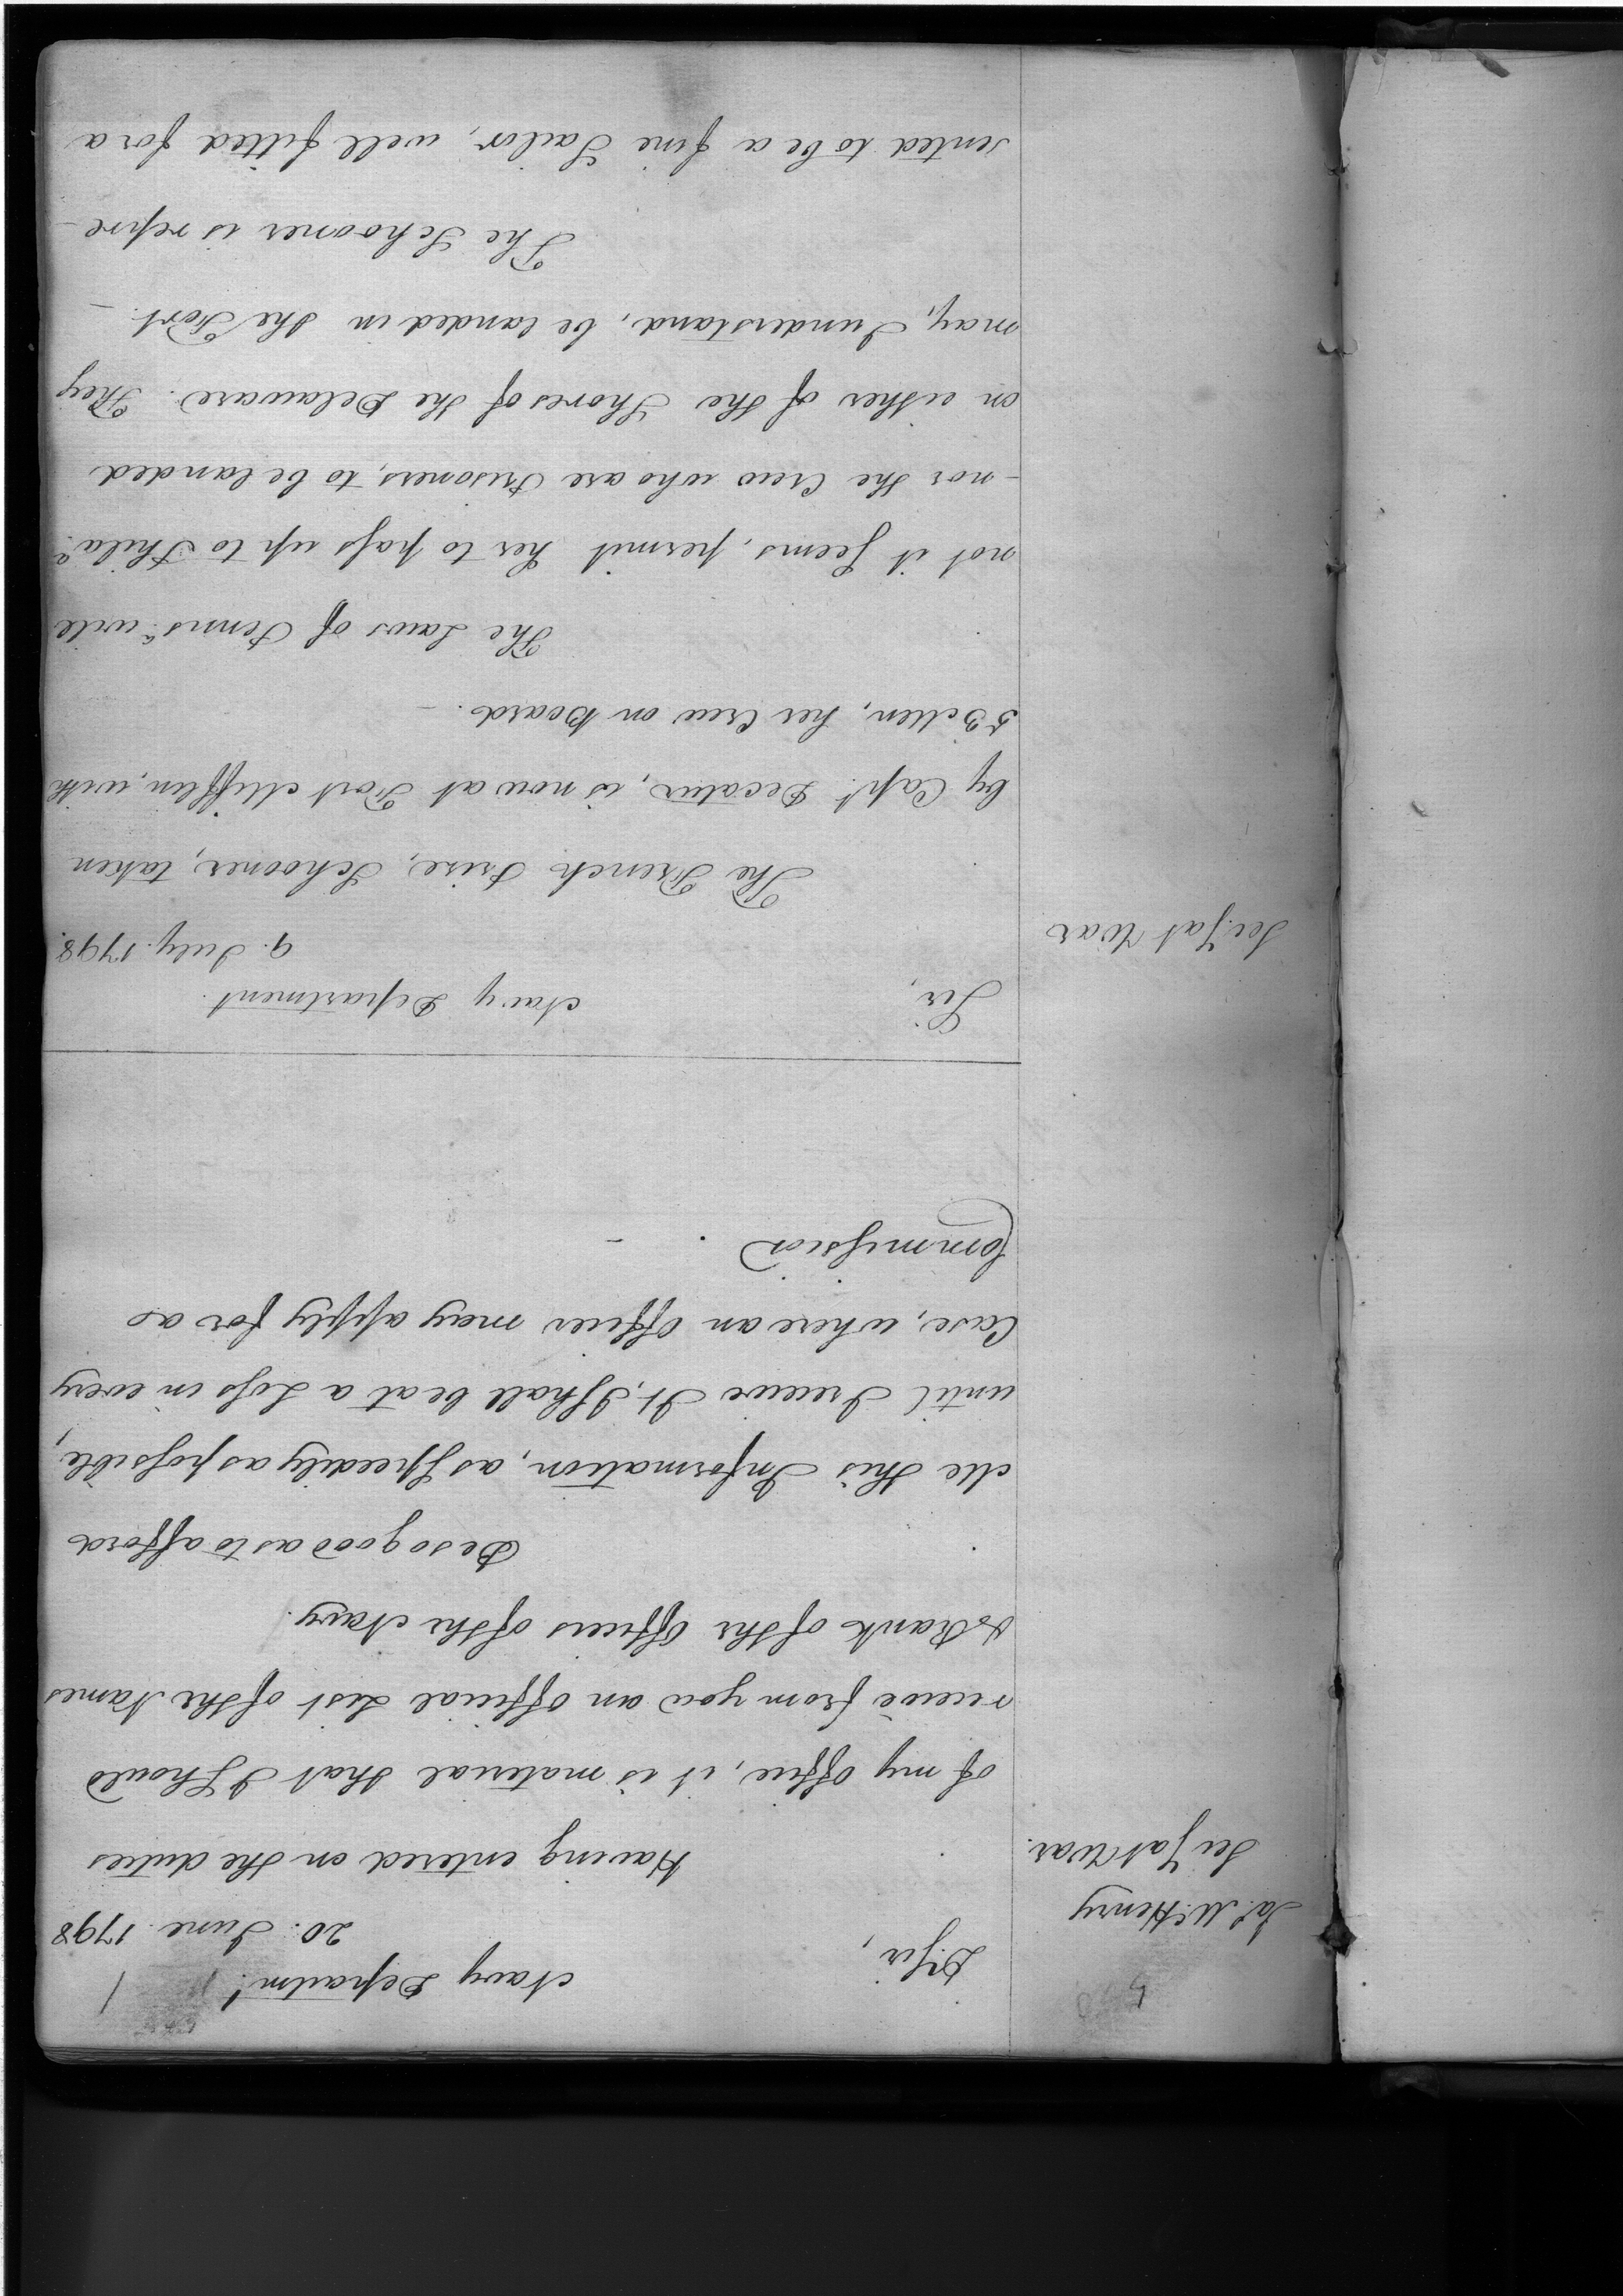 Navy Departmt.
Ja.s McHenry
Secy at War.
D Sir,
20. June 1798
Having entered on the duties
of my office, it is material that I should
receive from you an official List of the Names
& Rank of the Officers of the Navy.
Be so good as to afford
Me this Information, as speedily as possible,
until I receive It, I shall be at a Loss in every
Case, where an Officer may apply for a
Commission
Sir,
Navy Department
Secy at War
9. July. 1798.
The French Prize, Schooner, taken
by Capt. Decatur, is now at Fort Mifflin, with
53 Men, her Crew on board. –
The Laws of Pennsa. will
not it seems, permit her to pass up to Phila.
nor the Crew who are Prisoners, to be landed
on either of the Shores of the Delaware. They
may, I understand, be landed in the Fort. –
The Schooner is repre-
sented to be a fine Sailor, well fitted for a